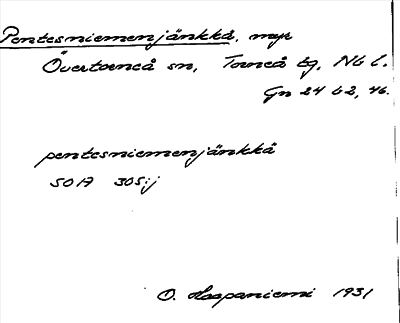 Pentesniemenjänkkä, myr
Övertorneå sn, Torneå tg, Nb l.
Gn 24 b2, 46.
pentesniemenjänkkä
SOA 305:j
O. Haapaniemi 1931